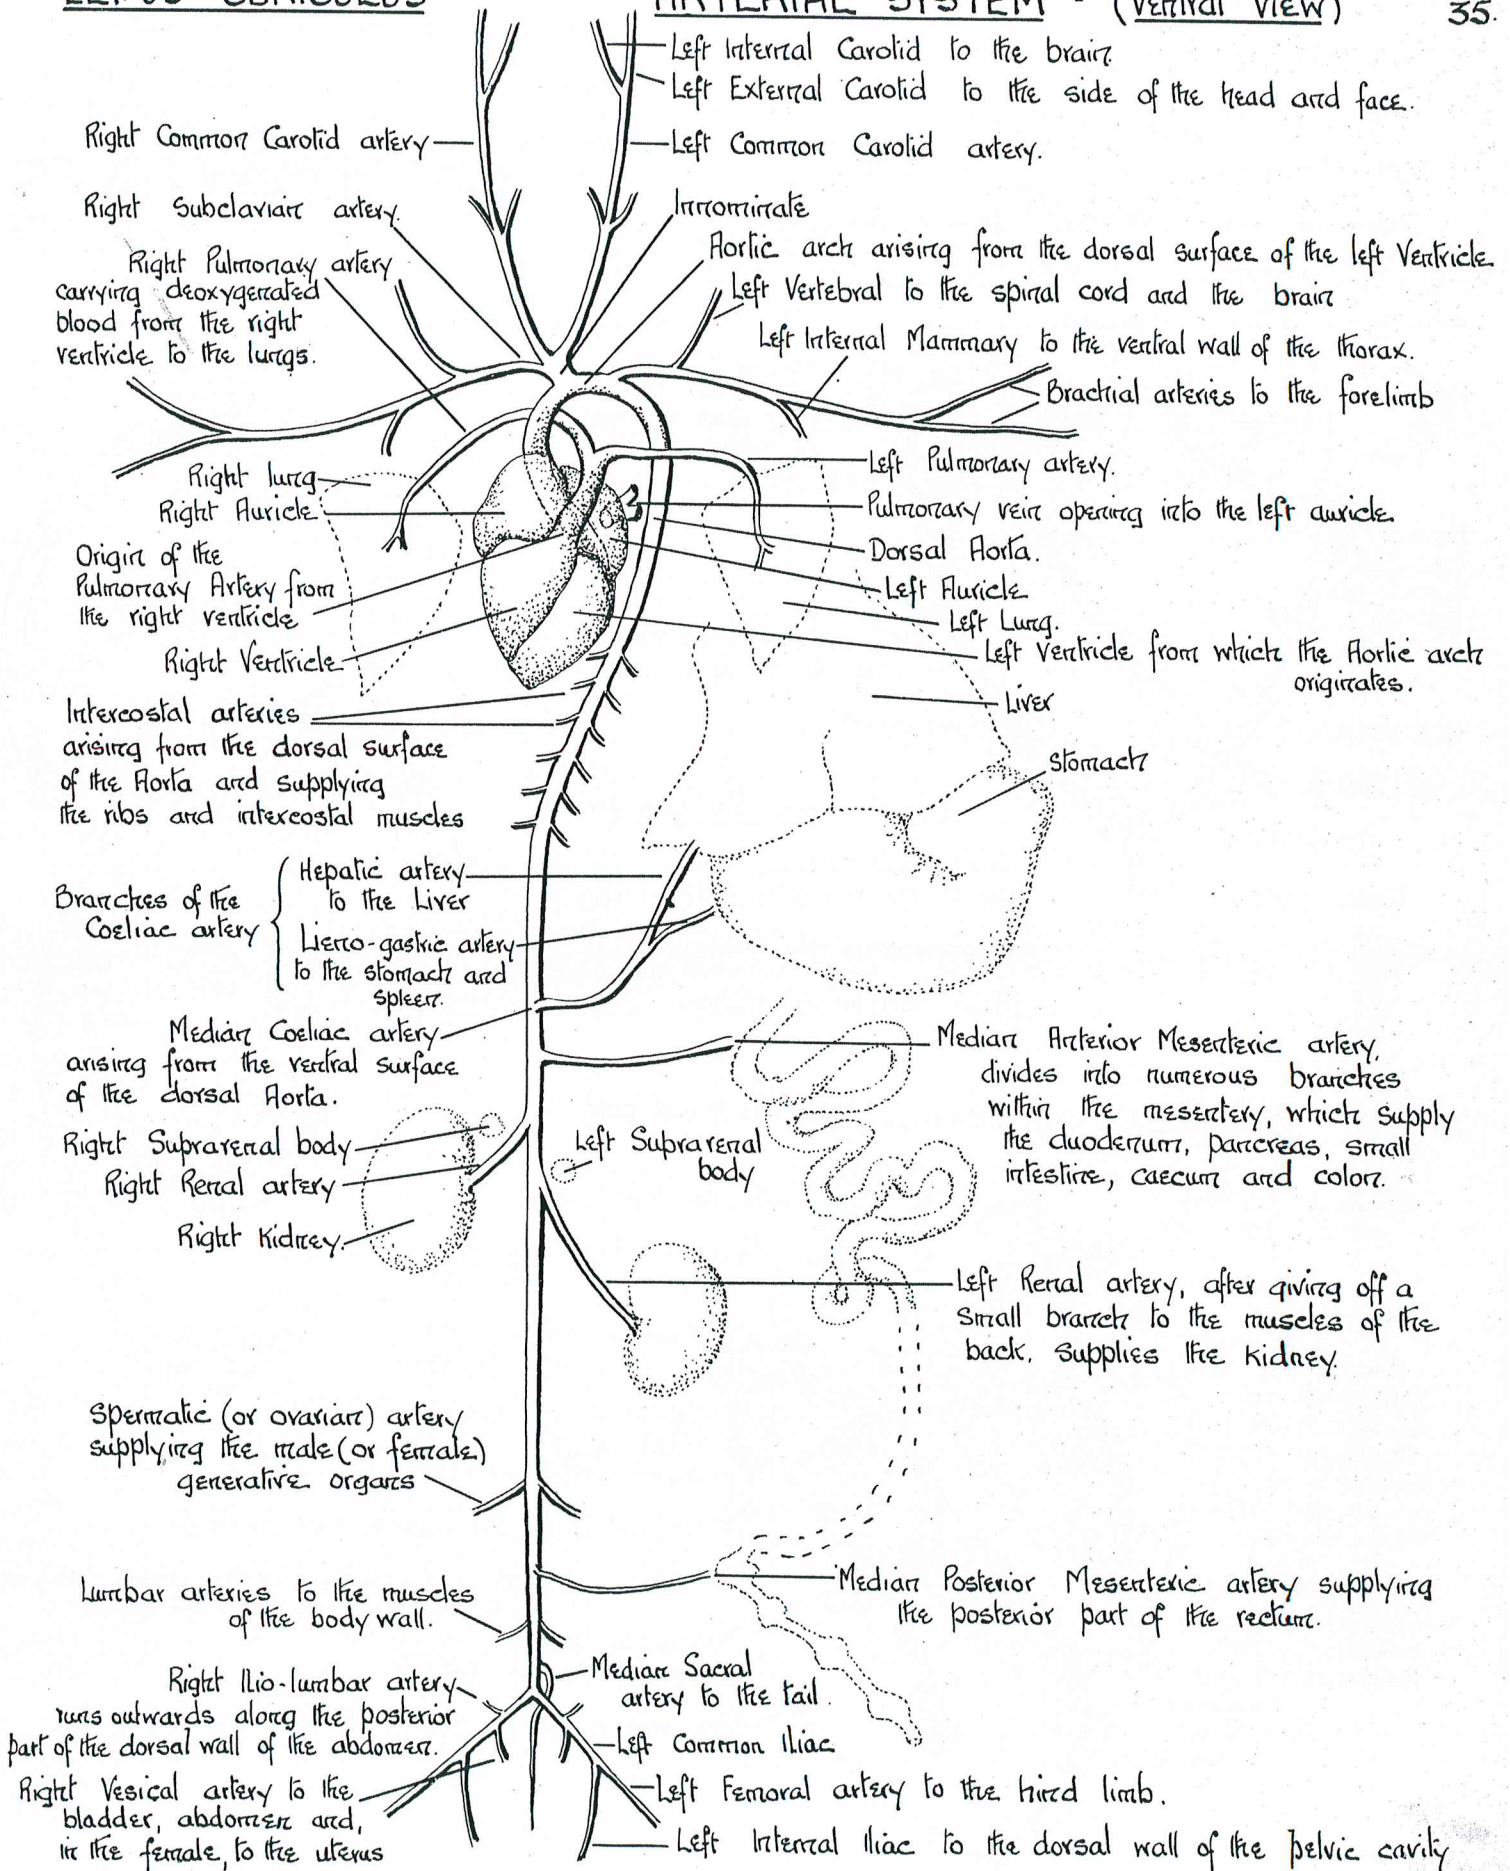 LEPUS CUNICULUS
ARTERIAL SYSTEM - (Ventral View)
35.
Left Internal Carotid to the brain.
Left External Carotid to the side of the head and face.
Right Common Carotid artery
Left Common Carotid artery.
Right Subclavian artery.
Innominate
Right Pulmonary artery
carrying deoxygenated
blood from the right
ventricle to the lungs.
Aortic arch arising from the dorsal surface of the left Ventricle
Left Vertebral to the spinal cord and the brain
Left Internal Mammary to the ventral wall of the thorax.
Brachial arteries to the forelimb
Right lung
Right Auricle
Origin of the
Pulmonary Artery from
the right ventricle
Right Ventricle
Left Pulmonary artery.
Pulmonary vein opening into the left auricle.
Dorsal Aorta.
Left Auricle
Left Lung.
Left Ventricle from which the Aortic arch
originates.
Liver
Stomach
Intercostal arteries
arising from the dorsal surface
of the Aorta and supplying
the ribs and intercostal muscles
Branches of the
Coeliac artery
Hepatic artery
to the Liver
Lieno-gastric artery
to the stomach and
spleen.
Median Coeliac artery
arising from the ventral surface
of the dorsal Aorta.
Median Anterior Mesenteric artery,
divides into numerous branches
within the mesentery, which supply
the duodenum, pancreas, small
intestine, caecum and colon.
Right Suprarenal body
Right Renal artery
Right Kidney.
Left Suprarenal
body
Left Renal artery, after giving off a
small branch to the muscles of the
back, supplies the kidney.
Spermatic (or ovarian) artery
supplying the male (or female)
generative organs
Lumbar arteries to the muscles
of the body wall.
Median Posterior Mesenteric artery supplying
the posterior part of the rectum.
Right Ilio-lumbar artery
runs outwards along the posterior
part of the dorsal wall of the abdomen.
Median Sacral
artery to the tail.
Left Common Iliac
Right Vesical artery to the
bladder, abdomen and,
in the female, to the uterus
Left Femoral artery to the hind limb.
Left Internal Iliac to the dorsal wall of the pelvic cavity